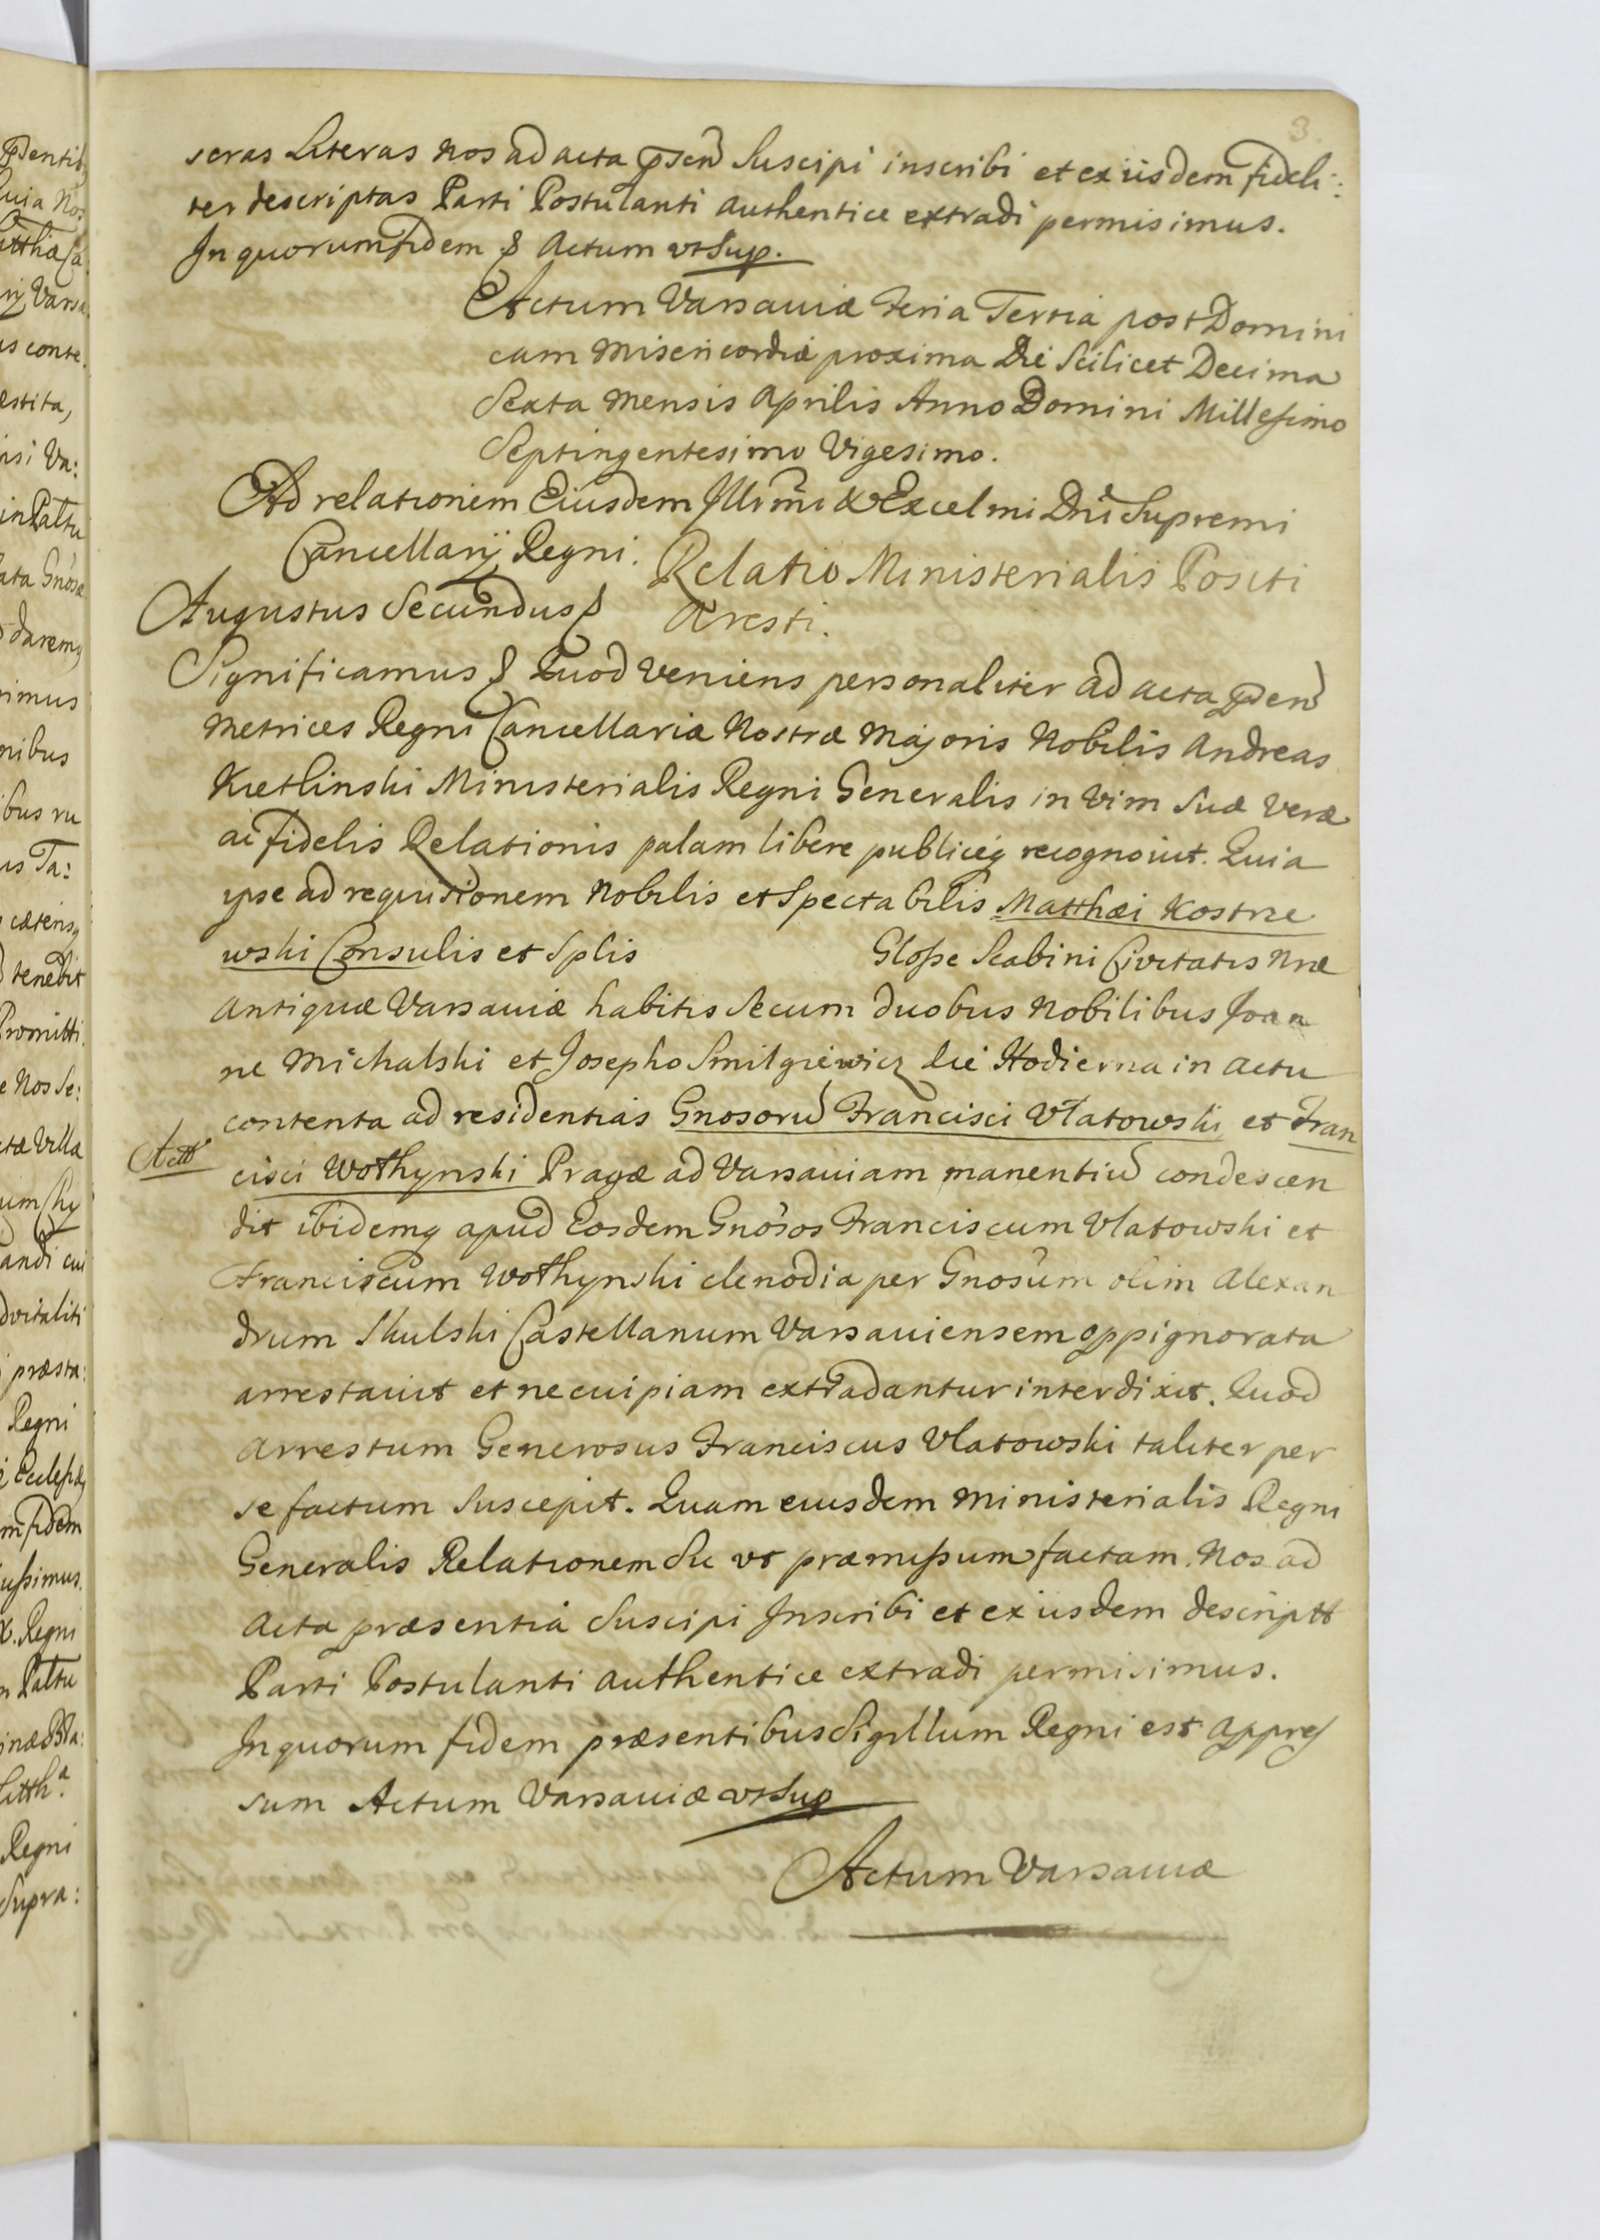 3
scras Literas nos ad acta psen Suscipi inscribi et ex iisdem fideli:
ter descriptas Parti Postulanti authentice extradi permisimus.
In quorum fidem & Actum ut Sup.
Actum Varsaviæ Feria Tertia post Domini
cam Misericordiæ proxima Die Scilicet Decima
Sexta Mensis Aprilis Anno Domini Millesimo
Septingentesimo Vigesimo.
Ad relationem Eiusdem Illrmi & Excelmi Dni Supremi
Cancellarij Regni.
Relatio Ministerialis Positi
Aresti.
Augustus Secundus &
Significamus & Quod veniens personaliter ad acta psen
Metrices Regni Cancellariæ Nostræ Majoris Nobilis Andreas
Kietlinski Ministerialis Regni Generalis in vim suæ veræ
ac fidelis Relationis palam libere publiceq recognovit. Quia
ipse ad requisitionem Nobilis et Spectabilis Matthæi Kostrze
wski Consulis et Splis Glosse Scabini Civitatis Nræ
Antiquæ Varsaviæ habitis secum duobus Nobilibus Joan
ne Michalski et Josepho Smilgiewicz die Hodierna in actu
contenta ad residentias Gnosoru Francisci Vlatowski et Fran
Actt
cisci Wothynski Pragæ ad Varsaviam manentiu condescen
dit ibidemq apud Eosdem Gnosos Franciscum Vlatowski et
Franciscum Wothynski clenodia per Gnosum olim Alexan
drum Skulski Castellanum Varsaviensem oppignorata
arrestavit et ne cuipiam extradantur interdixit. Quod
arrestum Generosus Franciscus Vlatowski taliter per
se factum suscepit. Quam eiusdem Ministerialis Regni
Generalis Relationem Sic ut præmissum factam. Nos ad
Acta præsentia Suscipi Inscribi et ex iisdem descriptt
Parti Postulanti authentice extradi permisimus.
In quorum fidem præsentibus Sigillum Regni est appres
sum Actum Varsaviæ ut Sup
Actum Varsaviæ